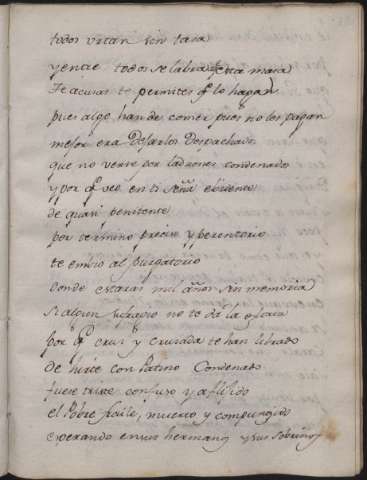 todos vrtan sin tasa
yentre todos se labra esta masa
Te acusas te permites q̃ lo hagan
pues algo han de comer pues no los pagan
mejor era Dejarlos Despachado
que no verse por ladrones condenado
y por q̃ veo en ti Señor
de quasi penitente
por termino breve y perentorio
te embio al purgatorio
donde estaras mil años sin memoria
si algun sufragio no te da la gloria
por q̃ cruz y cruzada te han librado
de hirte con Patino Condenado
fuese triste confuso y aflijido
el Pobre fraile, muerto y compungido
esperando en sus hermanos y sus sobrinos